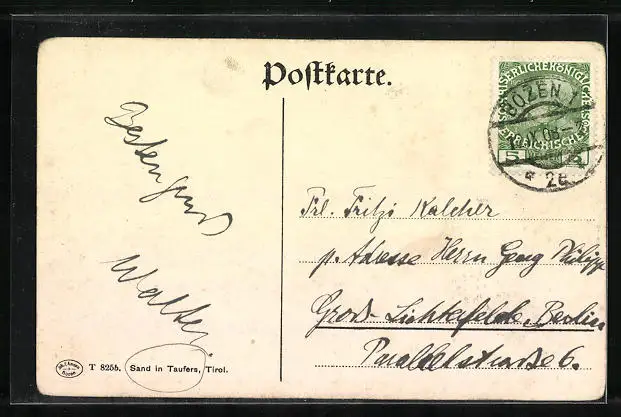 Postkarte.
KAISERLICHEKÖNIGLICHE
ÖSTERREICHISCHE
5
BOZEN 1
IX 08
* 2e
Besten Gruß
Walter.
Frl. Fritzi Kalcher
p. Adresse Herrn Georg Philipp
Groß-Lichterfelde, Berlin
Parallelstraße 6.
T 8255. Sand in Taufers, Tirol.